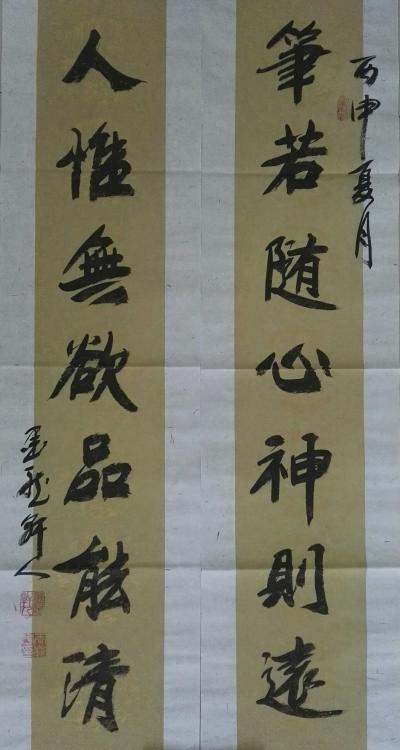 丙申夏月
筆若随心神則遠
人惟無欲品能清
墨龍軒人